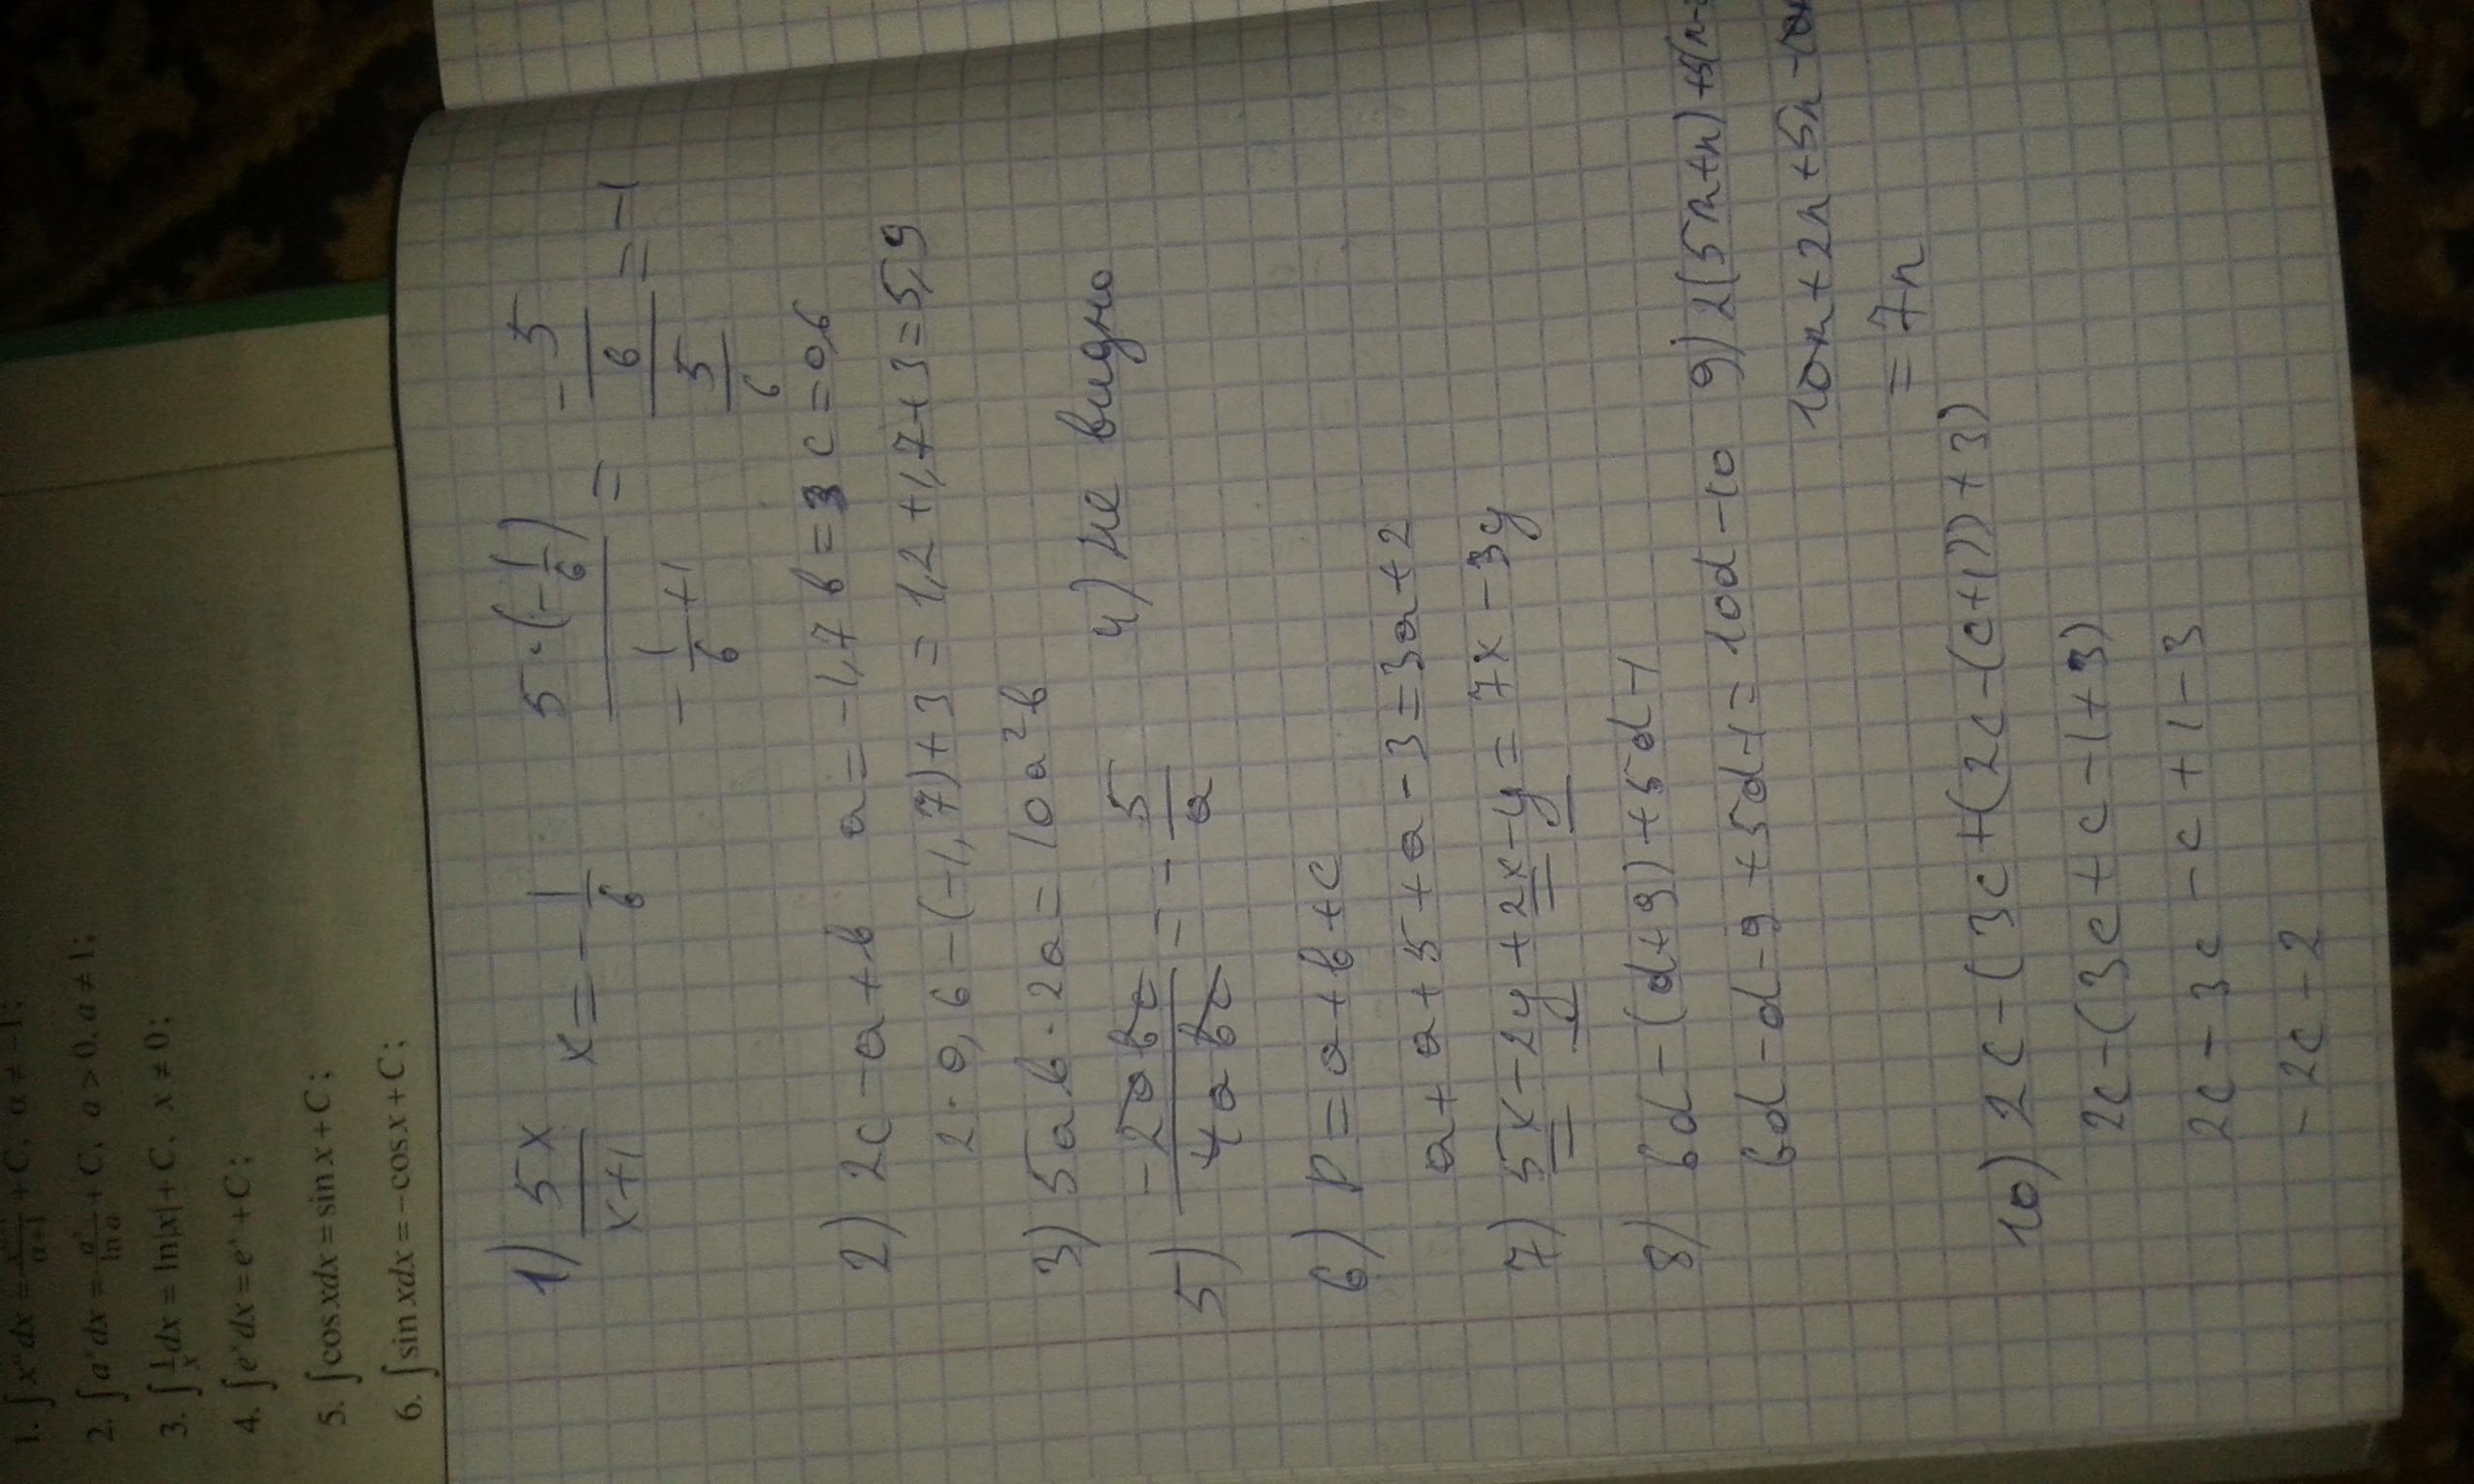 1. ∫xᵅdx = xᵅ⁺¹/(α+1) + C, α ≠ −1;
2. ∫aˣdx = aˣ/ln a + C, a > 0, a ≠ 1;
3. ∫1/x dx = ln|x| + C, x ≠ 0;
4. ∫eˣdx = eˣ + C;
5. ∫cos xdx = sin x + C;
6. ∫sin xdx = −cos x + C;
1) 5x/(x+1) x = −1/6 5·(−1/6)/(−1/6+1) = (−5/6)/(5/6) = −1
2) 2c − a + b a = −1,7 b = 3 c = 0,6
2·0,6 − (−1,7) + 3 = 1,2 + 1,7 + 3 = 5,9
3) 5ab·2a = 10a²b
4) не видно
5) = − 5/a
6) p = a + b + c
a + a + 5 + a − 3 = 3a + 2
7) 5x − 2y + 2x − y = 7x − 3y
8) 6d − (d + 9) + 5d − 1
6d − d − 9 + 5d − 1 = 10d − 10
9) 2(5m + n) + 5(n −
10m + 2n + 5n − 10m
= 7n
10) 2c − (3c + (2c − (c + 1)) + 3)
2c − (3c + c − 1 + 3)
2c − 3c − c + 1 − 3
−2c − 2